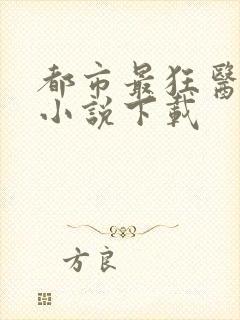 都市最狂醫
小說下載
方良